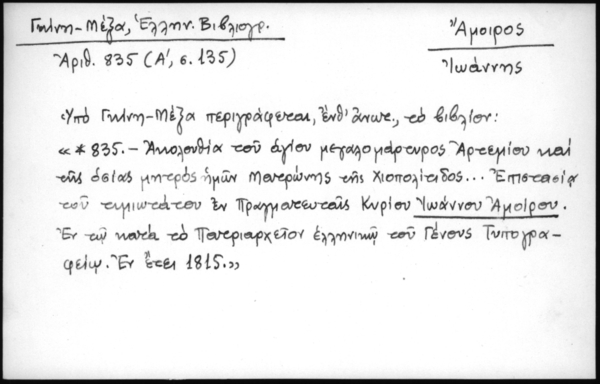 Γκίνη-Μέξα, Ἑλλην. Βιβλιογρ.
Ἀριθ. 835 (Α', σ. 135)
Ἄμοιρος
Ἰωάννης
Ὑπό Γκίνη-Μέξα περιγράφεται, ἔνθ' ἄνωτ., τό βιβλίον:
«*835.- Ἀκολουθία τοῦ ἁγίου μεγαλομάρτυρος Ἀρτεμίου καί
τῆς ὁσίας μητρός ἡμῶν Ματρώνης τῆς Χιοπολίτιδος... Ἐπιστασίᾳ
τοῦ τιμιωτάτου ἐν Πραγματευταῖς Κυρίου Ἰωάννου Ἀμοίρου.
Ἐν τῷ κατά τό Πατριαρχεῖον ἑλληνικῷ τοῦ Γένους Τυπογρα-
φείῳ. Ἐν ἔτει 1815.»